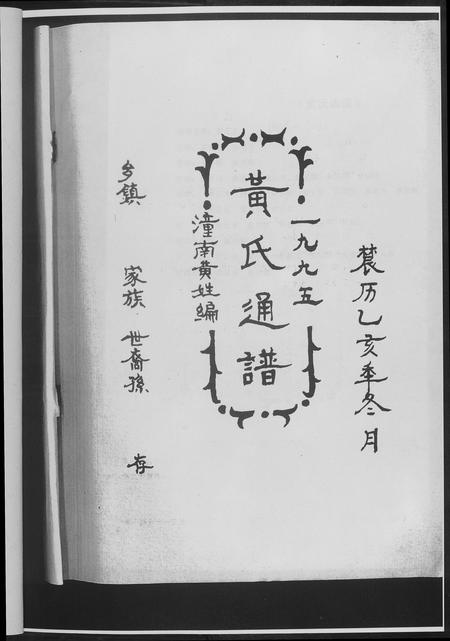 農历乙亥年冬月
一九九五
黃氏通譜
潼南黄姓编
乡鎮 家族 世裔孫 存